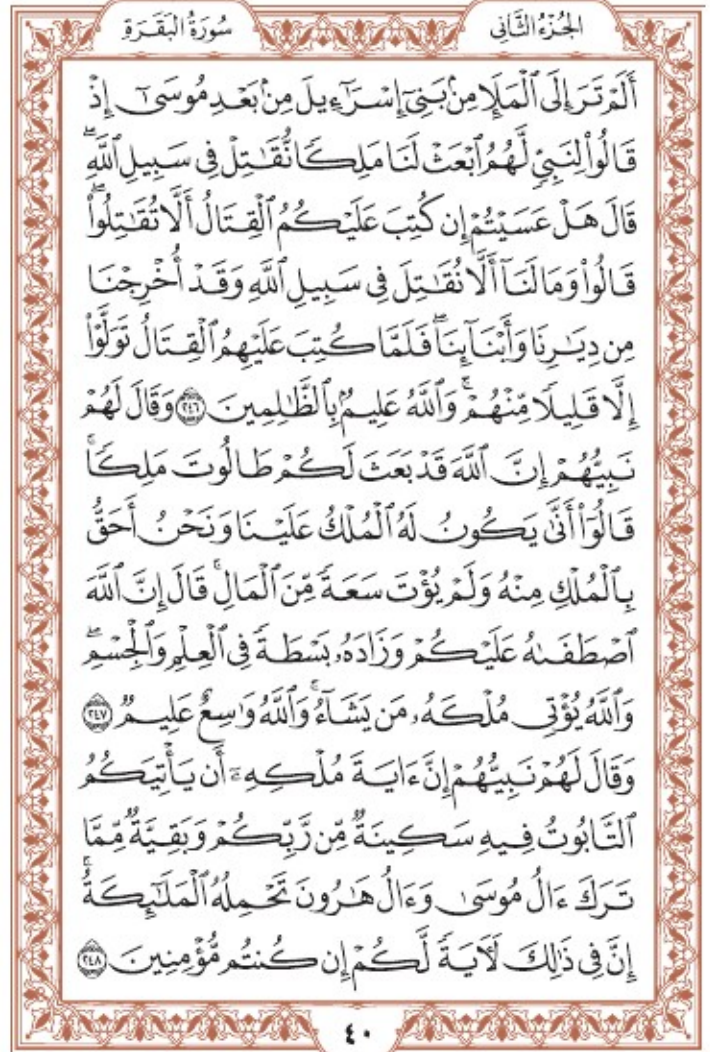 سُورَةُ البَقَرَةِ الجُزْءُ الثَّانِي
أَلَمْ تَرَ إِلَى ٱلْمَلَإِ مِنۢ بَنِىٓ إِسْرَٰٓءِيلَ مِنۢ بَعْدِ مُوسَىٰٓ إِذْ
قَالُوا۟ لِنَبِىٍّ لَّهُمُ ٱبْعَثْ لَنَا مَلِكًا نُّقَٰتِلْ فِى سَبِيلِ ٱللَّهِۖ
قَالَ هَلْ عَسَيْتُمْ إِن كُتِبَ عَلَيْكُمُ ٱلْقِتَالُ أَلَّا تُقَٰتِلُوا۟ۖ
قَالُوا۟ وَمَا لَنَآ أَلَّا نُقَٰتِلَ فِى سَبِيلِ ٱللَّهِ وَقَدْ أُخْرِجْنَا
مِن دِيَٰرِنَا وَأَبْنَآئِنَاۖ فَلَمَّا كُتِبَ عَلَيْهِمُ ٱلْقِتَالُ تَوَلَّوْا۟
إِلَّا قَلِيلًا مِّنْهُمْۚ وَٱللَّهُ عَلِيمٌۢ بِٱلظَّٰلِمِينَ ۝٢٤٦ وَقَالَ لَهُمْ
نَبِيُّهُمْ إِنَّ ٱللَّهَ قَدْ بَعَثَ لَكُمْ طَالُوتَ مَلِكًاۚ
قَالُوٓا۟ أَنَّىٰ يَكُونُ لَهُ ٱلْمُلْكُ عَلَيْنَا وَنَحْنُ أَحَقُّ
بِٱلْمُلْكِ مِنْهُ وَلَمْ يُؤْتَ سَعَةً مِّنَ ٱلْمَالِۚ قَالَ إِنَّ ٱللَّهَ
ٱصْطَفَىٰهُ عَلَيْكُمْ وَزَادَهُۥ بَسْطَةً فِى ٱلْعِلْمِ وَٱلْجِسْمِۖ
وَٱللَّهُ يُؤْتِى مُلْكَهُۥ مَن يَشَآءُۚ وَٱللَّهُ وَٰسِعٌ عَلِيمٌ ۝٢٤٧
وَقَالَ لَهُمْ نَبِيُّهُمْ إِنَّ ءَايَةَ مُلْكِهِۦٓ أَن يَأْتِيَكُمُ
ٱلتَّابُوتُ فِيهِ سَكِينَةٌ مِّن رَّبِّكُمْ وَبَقِيَّةٌ مِّمَّا
تَرَكَ ءَالُ مُوسَىٰ وَءَالُ هَٰرُونَ تَحْمِلُهُ ٱلْمَلَٰٓئِكَةُۚ
إِنَّ فِى ذَٰلِكَ لَءَايَةً لَّكُمْ إِن كُنتُم مُّؤْمِنِينَ ۝٢٤٨
٤٠